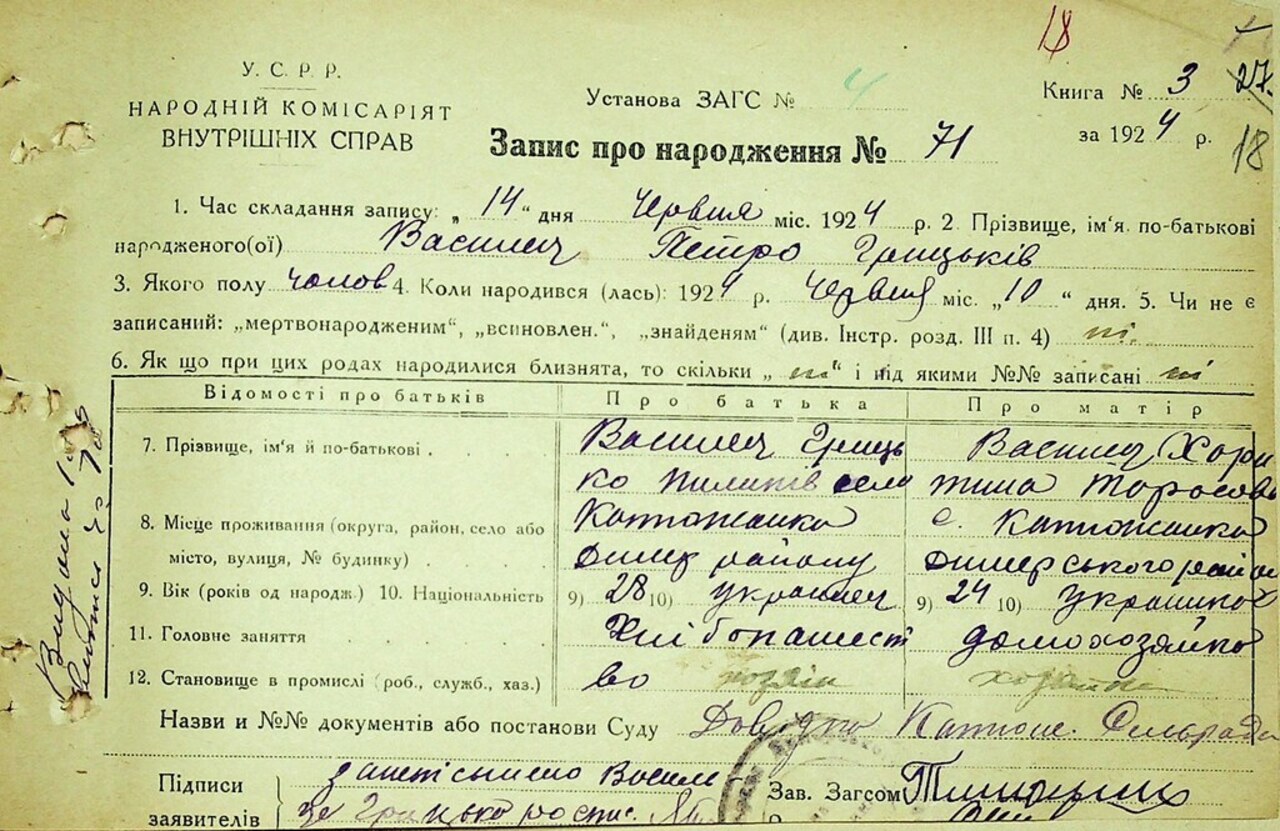 18
У. С. Р. Р.
НАРОДНІЙ КОМІСАРІЯТ
ВНУТРІШНІХ СПРАВ
Установа ЗАГС № 4
Книга № 3 27.
за 1924 р. 18
Запис про народження № 71
1. Час складання запису: „14“ дня Червня міс. 1924 р. 2. Прізвище, ім'я, по-батькові
народженого(ої) Василец Петро Грицьків
3. Якого полу чолов 4. Коли народився (лась): 1924 р. Червня міс. „10“ дня. 5. Чи не є
записаний: „мертвонародженим“, „всиновлен.“, „знайденям“ (див. Інстр. розд. III п. 4) ні.
6. Як що при цих родах народилися близнята, то скільки „ні“ і під якими №№ записані ні
Відомості про батьків Про батька Про матір
7. Прізвище, ім'я й по-батькові Василец Гриць Василец Хори
ко Пилипів село тина Тарасовн
8. Місце проживання (округа, район, село або Катюжанка с. Катюжанка
місто, вулиця, № будинку) Димер району Димерського району
9. Вік (років од народж.) 10. Національність 9) 28 10) украинец 9) 24 10) украинка
11. Головне заняття Хлібопашест домохозяйка
12. Становище в промислі (роб., служб., хаз.) во хозяін хозяйка
Назви и №№ документів або постанови Суду Довідка Катюж. Сільради
Підписи
заявителів
за Грицько роспис.
Зав. Загсом